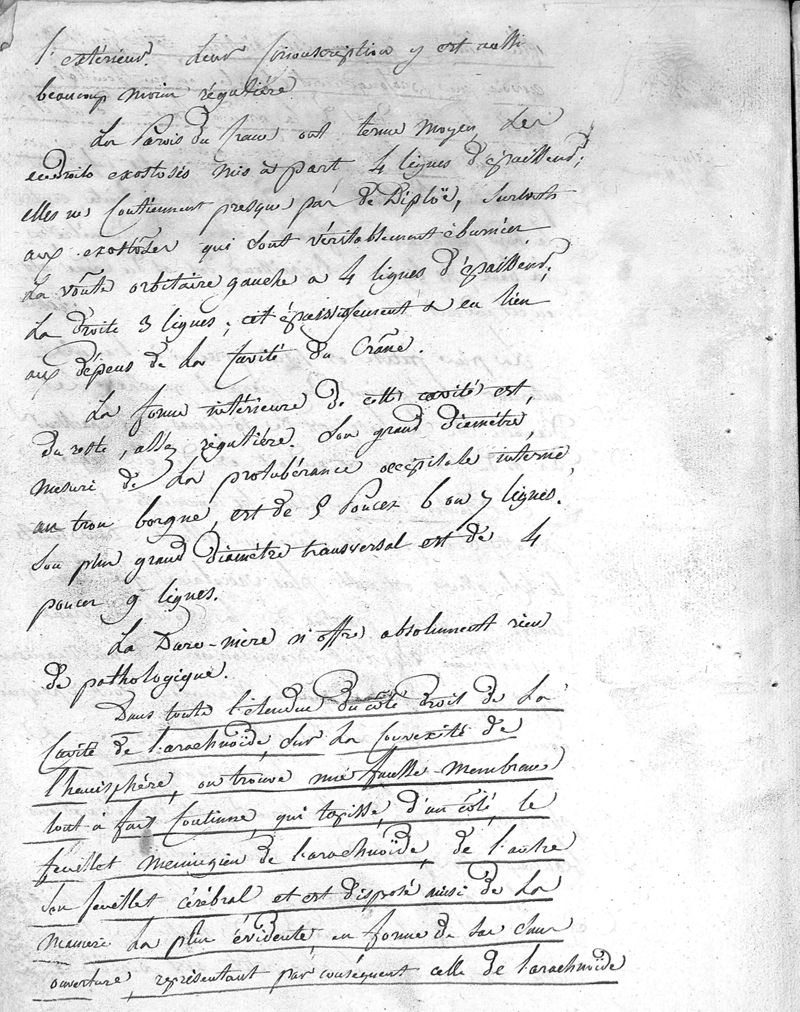 l'extérieur. Leur Circonscription y est aussi
beaucoup moins régulière
La Parois du Crane ont terme moyen, les
endroits exostosés mis à part, 4 lignes d'épaisseur;
elles ne Contiennent presque pas de Diploë, surtout
aux exostôses qui sont véritablement éburnées
La voûte orbitaire gauche a 4 lignes d'épaisseur,
La droite 3 lignes; cet épaississement a eu lieu
aux dépens de La Cavité du Crâne.
La forme intérieure de cette cavité est,
du reste, assez régulière. Son grand diamètre,
mesuré de La protubérance occipitale interne
au trou borgne, est de 5 Pouces 6 ou 7 lignes.
Son plus grand diamètre transversal est de 4
pouces 9 lignes.
La Dure-mère n'offre absolument rien
de pathologique.
Dans toute l'étendue du côté droit de La
Cavité de l'arachnoïde, sur La Convexité de
l'hémisphère, on trouve une fausse-membrane
tout à fait Continue, qui tapisse, d'un côté, le
feuillet méningien de l'arachnoïde, de l'autre
Son feuillet cérébral et est disposée ainsi de La
Manière La plus évidente, en forme de sac sans
ouverture, représentant par conséquent celle de l'arachnoïde